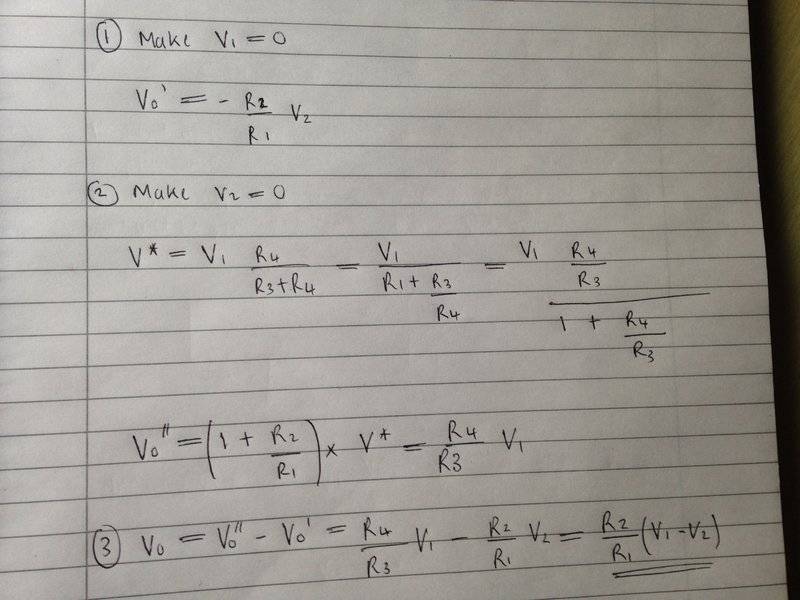 ① Make V₁ = 0
V₀' = - R2/R1 V₂
② Make V₂ = 0
V* = V₁ R4/(R3+R4) = V₁/(R1 + R3/R4) = V₁ (R4/R3)/(1 + R4/R3)
V₀'' = (1 + R2/R1) × V* = R4/R3 V₁
③ V₀ = V₀'' - V₀' = R4/R3 V₁ - R2/R1 V₂ = R2/R1 (V₁ - V₂)